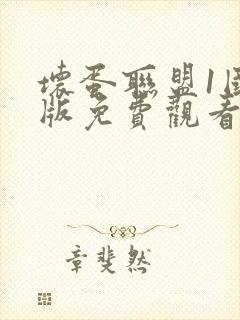 壞蛋聯盟1國
版免費觀看
章斐然